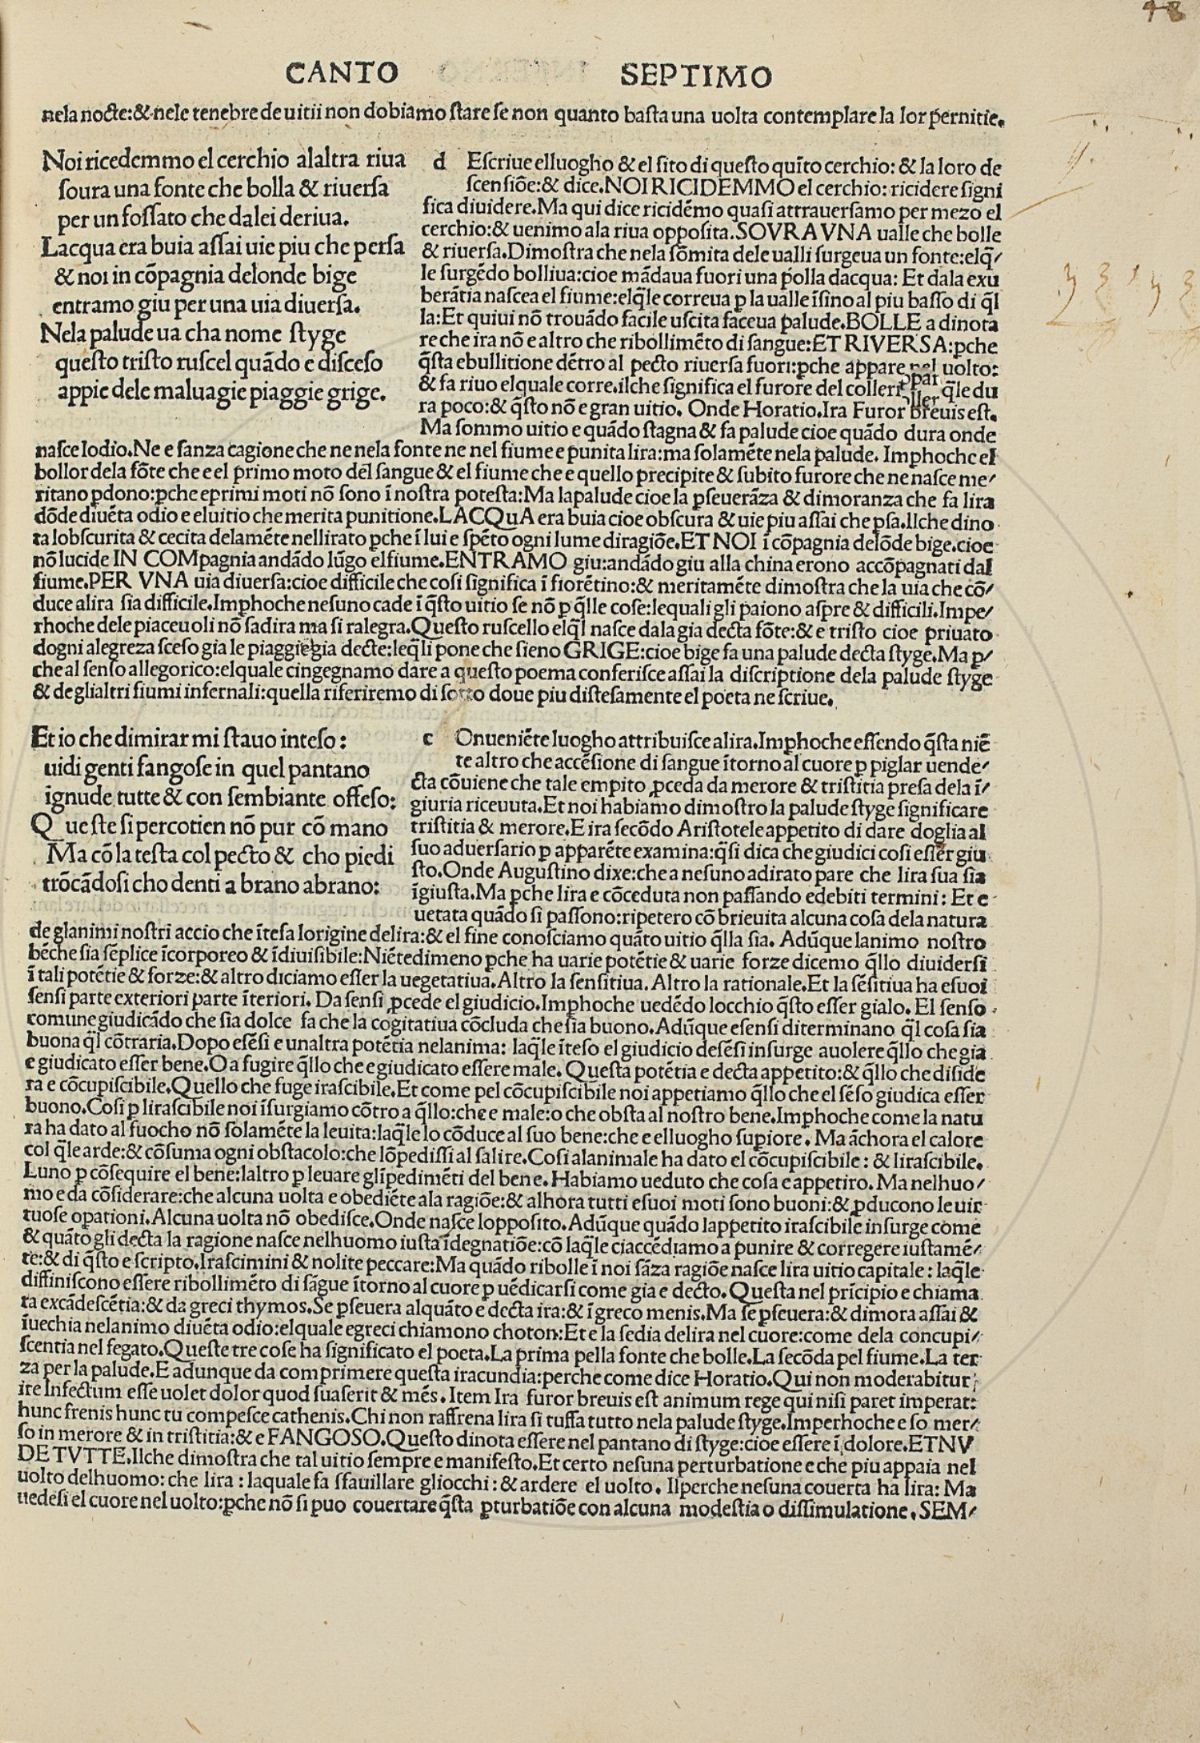 48
CANTO SEPTIMO
nela nocte:& nele tenebre de uitii non dobiamo ſtare ſe non quanto baſta una uolta contemplare la lor p̄nitie.
Noi ricedemmo el cerchio alaltra riua
ſoura una fonte che bolla & riuerſa
per un foſſato che dalei deriua.
Lacqua era buia aſſai uie piu che perſa
& noi in cōpagnia delonde bige
entramo giu per una uia diuerſa.
Nela palude ua cha nome ſtyge
queſto triſto ruſcel quādo e diſceſo
appie dele maluagie piaggie grige.
d Eſcriue elluogho & el ſito di queſto quīto cerchio: & la loro de
ſcenſiōe:& dice.NOI RICIDEMMO el cerchio: ricidere ſigni
fica diuidere.Ma qui dice ricidēmo quaſi attrauerſamo per mezo el
cerchio:& uenimo ala riua oppoſita.SOVRA VNA ualle che bolle
& riuerſa.Dimoſtra che nela ſōmita dele ualli ſurgeua un fonte:elq̄/
le ſurgēdo bolliua:cioe mādaua fuori una polla dacqua: Et dala exu
berātia naſcea el fiume:elq̄le correua p̱ la ualle īſino al piu baſſo di q̄l
la:Et quiui nō trouādo facile uſcita faceua palude.BOLLE a dinota
re che ira nō e altro che ribollimēto di ſangue:ET RIVERSA:p̱che
q̄ſta ebullitione dētro al pecto riuerſa fuori:p̱che appare nel uolto:
& fa riuo elquale corre.ilche ſignifica el furore del colleri q̄le du
ra poco:& q̄ſto nō e gran uitio. Onde Horatio.Ira Furor breuis eſt.
Ma ſommo uitio e quādo ſtagna & fa palude cioe quādo dura onde
naſce lodio.Ne e ſanza cagione che ne nela fonte ne nel fiume e punita lira:ma ſolamēte nela palude. Imp̱hoche el
bollor dela fōte che e el primo moto del ſangue & el fiume che e quello precipite & ſubito furore che ne naſce me/
ritano p̱dono:p̱che eprimi moti nō ſono ī noſtra poteſta:Ma la palude cioe la p̱ſeuerāza & dimoranza che fa lira
dōde diuēta odio e el uitio che merita punitione.LACQuA era buia cioe obſcura & uie piu aſſai che p̱ſa.Ilche dino
ta lobſcurita & cecita delamēte nellirato p̱che ī lui e ſpēto ogni lume di ragiōe.ET NOI ī cōpagnia delōde bige.cioe
nō lucide IN COMpagnia andādo lūgo el fiume.ENTRAMO giu:andādo giu alla china erono accōpagnati dal
fiume.PER VNA uia diuerſa:cioe difficile che coſi ſignifica ī fiorētino:& meritamēte dimoſtra che la uia che cō/
duce alira ſia difficile.Imphoche neſuno cade ī q̄ſto uitio ſe nō p̱ q̄lle coſe:lequali gli paiono aſpre & difficili.Impe/
rhoche dele piaceuoli nō ſadira ma ſi ralegra.Queſto ruſcello elq̄l naſce dala gia decta fōte:& e triſto cioe priuato
dogni alegreza ſceſo gia le piaggie gia decte:leq̄li pone che ſieno GRIGE:cioe bige fa una palude decta ſtyge.Ma p̱/
che al ſenſo allegorico:elquale cingegnamo dare a queſto poema conferiſce aſſai la diſcriptione dela palude ſtyge
& deglialtri fiumi infernali:quella riferiremo di ſotto doue piu diſteſamente el poeta ne ſcriue.
Et io che dimirar mi ſtauo inteſo:
uidi genti fangoſe in quel pantano
ignude tutte & con ſembiante offeſo:
Queſte ſi percotien nō pur cō mano
Ma cō la teſta col pecto & cho piedi
trōcādoſi cho denti a brano abrano:
c Onueniēte luogho attribuiſce alira.Imphoche eſſendo q̄ſta niē
te altro che accēſione di ſangue ītorno al cuore p̱ piglar uende/
cta cōuiene che tale empito p̱ceda da merore & triſtitia preſa dela ī/
giuria riceuuta.Et noi habiamo dimoſtro la palude ſtyge ſignificare
triſtitia & merore.E ira ſecōdo Ariſtotele appetito di dare doglia al
ſuo aduerſario p̱ apparēte examina:q̄ſi dica che giudici coſi eſſer giu
ſto.Onde Auguſtino dixe:che a neſuno adirato pare che lira ſua ſia
īgiuſta.Ma p̱che lira e cōceduta non paſſando edebiti termini: Et e
uetata quādo ſi paſſono:ripetero cō brieuita alcuna coſa dela natura
de glanimi noſtri accio che īteſa lorigine delira:& el fine conoſciamo quāto uitio q̄lla ſia. Adūque lanimo noſtro
bēche ſia ſēplice īcorporeo & īdiuiſibile:Niētedimeno p̱che ha uarie potētie & uarie forze dicemo q̄llo diuiderſi
ī tali potētie & forze:& altro diciamo eſſer la uegetatiua. Altro la ſenſitiua. Altro la rationale. Et la ſēſitiua ha eſuoi
ſenſi parte exteriori parte īteriori. Da ſenſi p̱cede el giudicio.Imphoche uedēdo locchio q̄ſto eſſer gialo. El ſenſo
comune giudicādo che ſia dolce fa che la cogitatiua cōcluda che ſia buono.Adūque eſenſi diterminano q̄l coſa ſia
buona q̄l cōtraria.Dopo eſēſi e unaltra potētia nelanima: laq̄le īteſo el giudicio deſēſi inſurge auolere q̄llo che gia
e giudicato eſſer bene.O a fugire q̄llo che e giudicato eſſere male. Queſta potētia e decta appetito:& q̄llo che diſide
ra e cōcupiſcibile.Quello che fuge iraſcibile.Et come pel cōcupiſcibile noi appetiamo q̄llo che el ſēſo giudica eſſer
buono.Coſi p̱ liraſcibile noi īſurgiamo cōtro a q̄llo:che e male:o che obſta al noſtro bene.Imphoche come la natu
ra ha dato al fuocho nō ſolamēte la leuita:laq̄le lo cōduce al ſuo bene:che e elluogho ſupiore. Ma āchora el calore
col q̄le arde:& cōſuma ogni obſtacolo:che lōpediſſi al ſalire.Coſi alanimale ha dato el cōcupiſcibile: & liraſcibile.
Luno p̱ cōſequire el bene:laltro p̱ leuare glīpedimēti del bene. Habiamo ueduto che coſa e appetiro. Ma nelhuo/
mo e da cōſiderare:che alcuna uolta e obediēte ala ragiōe:& alhora tutti eſuoi moti ſono buoni:& p̱ducono le uir
tuoſe opationi.Alcuna uolta nō obediſce.Onde naſce loppoſito.Adūque quādo lappetito iraſcibile inſurge come
& quāto gli decta la ragione naſce nelhuomo iuſta īdegnatiōe:cō laq̄le ciaccēdiamo a punire & corregere iuſtamē/
te:& di q̄ſto e ſcripto.Iraſcimini & nolite peccare:Ma quādo ribolle ī noi ſāza ragiōe naſce lira uitio capitale: laq̄le
diffiniſcono eſſere ribollimēto di ſāgue ītorno al cuore p̱ uēdicarſi come gia e decto. Queſta nel prīcipio e chiama
ta excādeſcētia:& da greci thymos.Se p̱ſeuera alquāto e decta ira:& ī greco menis.Ma ſe p̱ſeuera:& dimora aſſai &
īuechia nelanimo diuēta odio:elquale egreci chiamono choton:Et e la ſedia delira nel cuore:come dela concupi/
ſcentia nel fegato.Queſte tre coſe ha ſignificato el poeta.La prima pella fonte che bolle.La ſecōda pel fiume.La ter
za per la palude.E adunque da comprimere queſta iracundia:perche come dice Horatio.Qui non moderabitur
ire Infectum eſſe uolet dolor quod ſuaſerit & mēs. Item Ira furor breuis eſt animum rege qui niſi paret imperat:
hunc frenis hunc tu compeſce cathenis.Chi non raffrena lira ſi tuffa tutto nela palude ſtyge.Imperhoche e ſo mer/
ſo in merore & in triſtitia:& e FANGOSO.Queſto dinota eſſere nel pantano di ſtyge:cioe eſſere ī dolore.ETNV
DE TVTTE.Ilche dimoſtra che tal uitio ſempre e manifeſto.Et certo neſuna perturbatione e che piu appaia nel
uolto delhuomo: che lira: laquale fa ſfauillare gliocchi: & ardere el uolto. Ilperche neſuna couerta ha lira: Ma
uedeſi el cuore nel uolto:p̱che nō ſi puo couertare q̄ſta p̱turbatiōe con alcuna modeſtia o diſſimulatione.SEM/